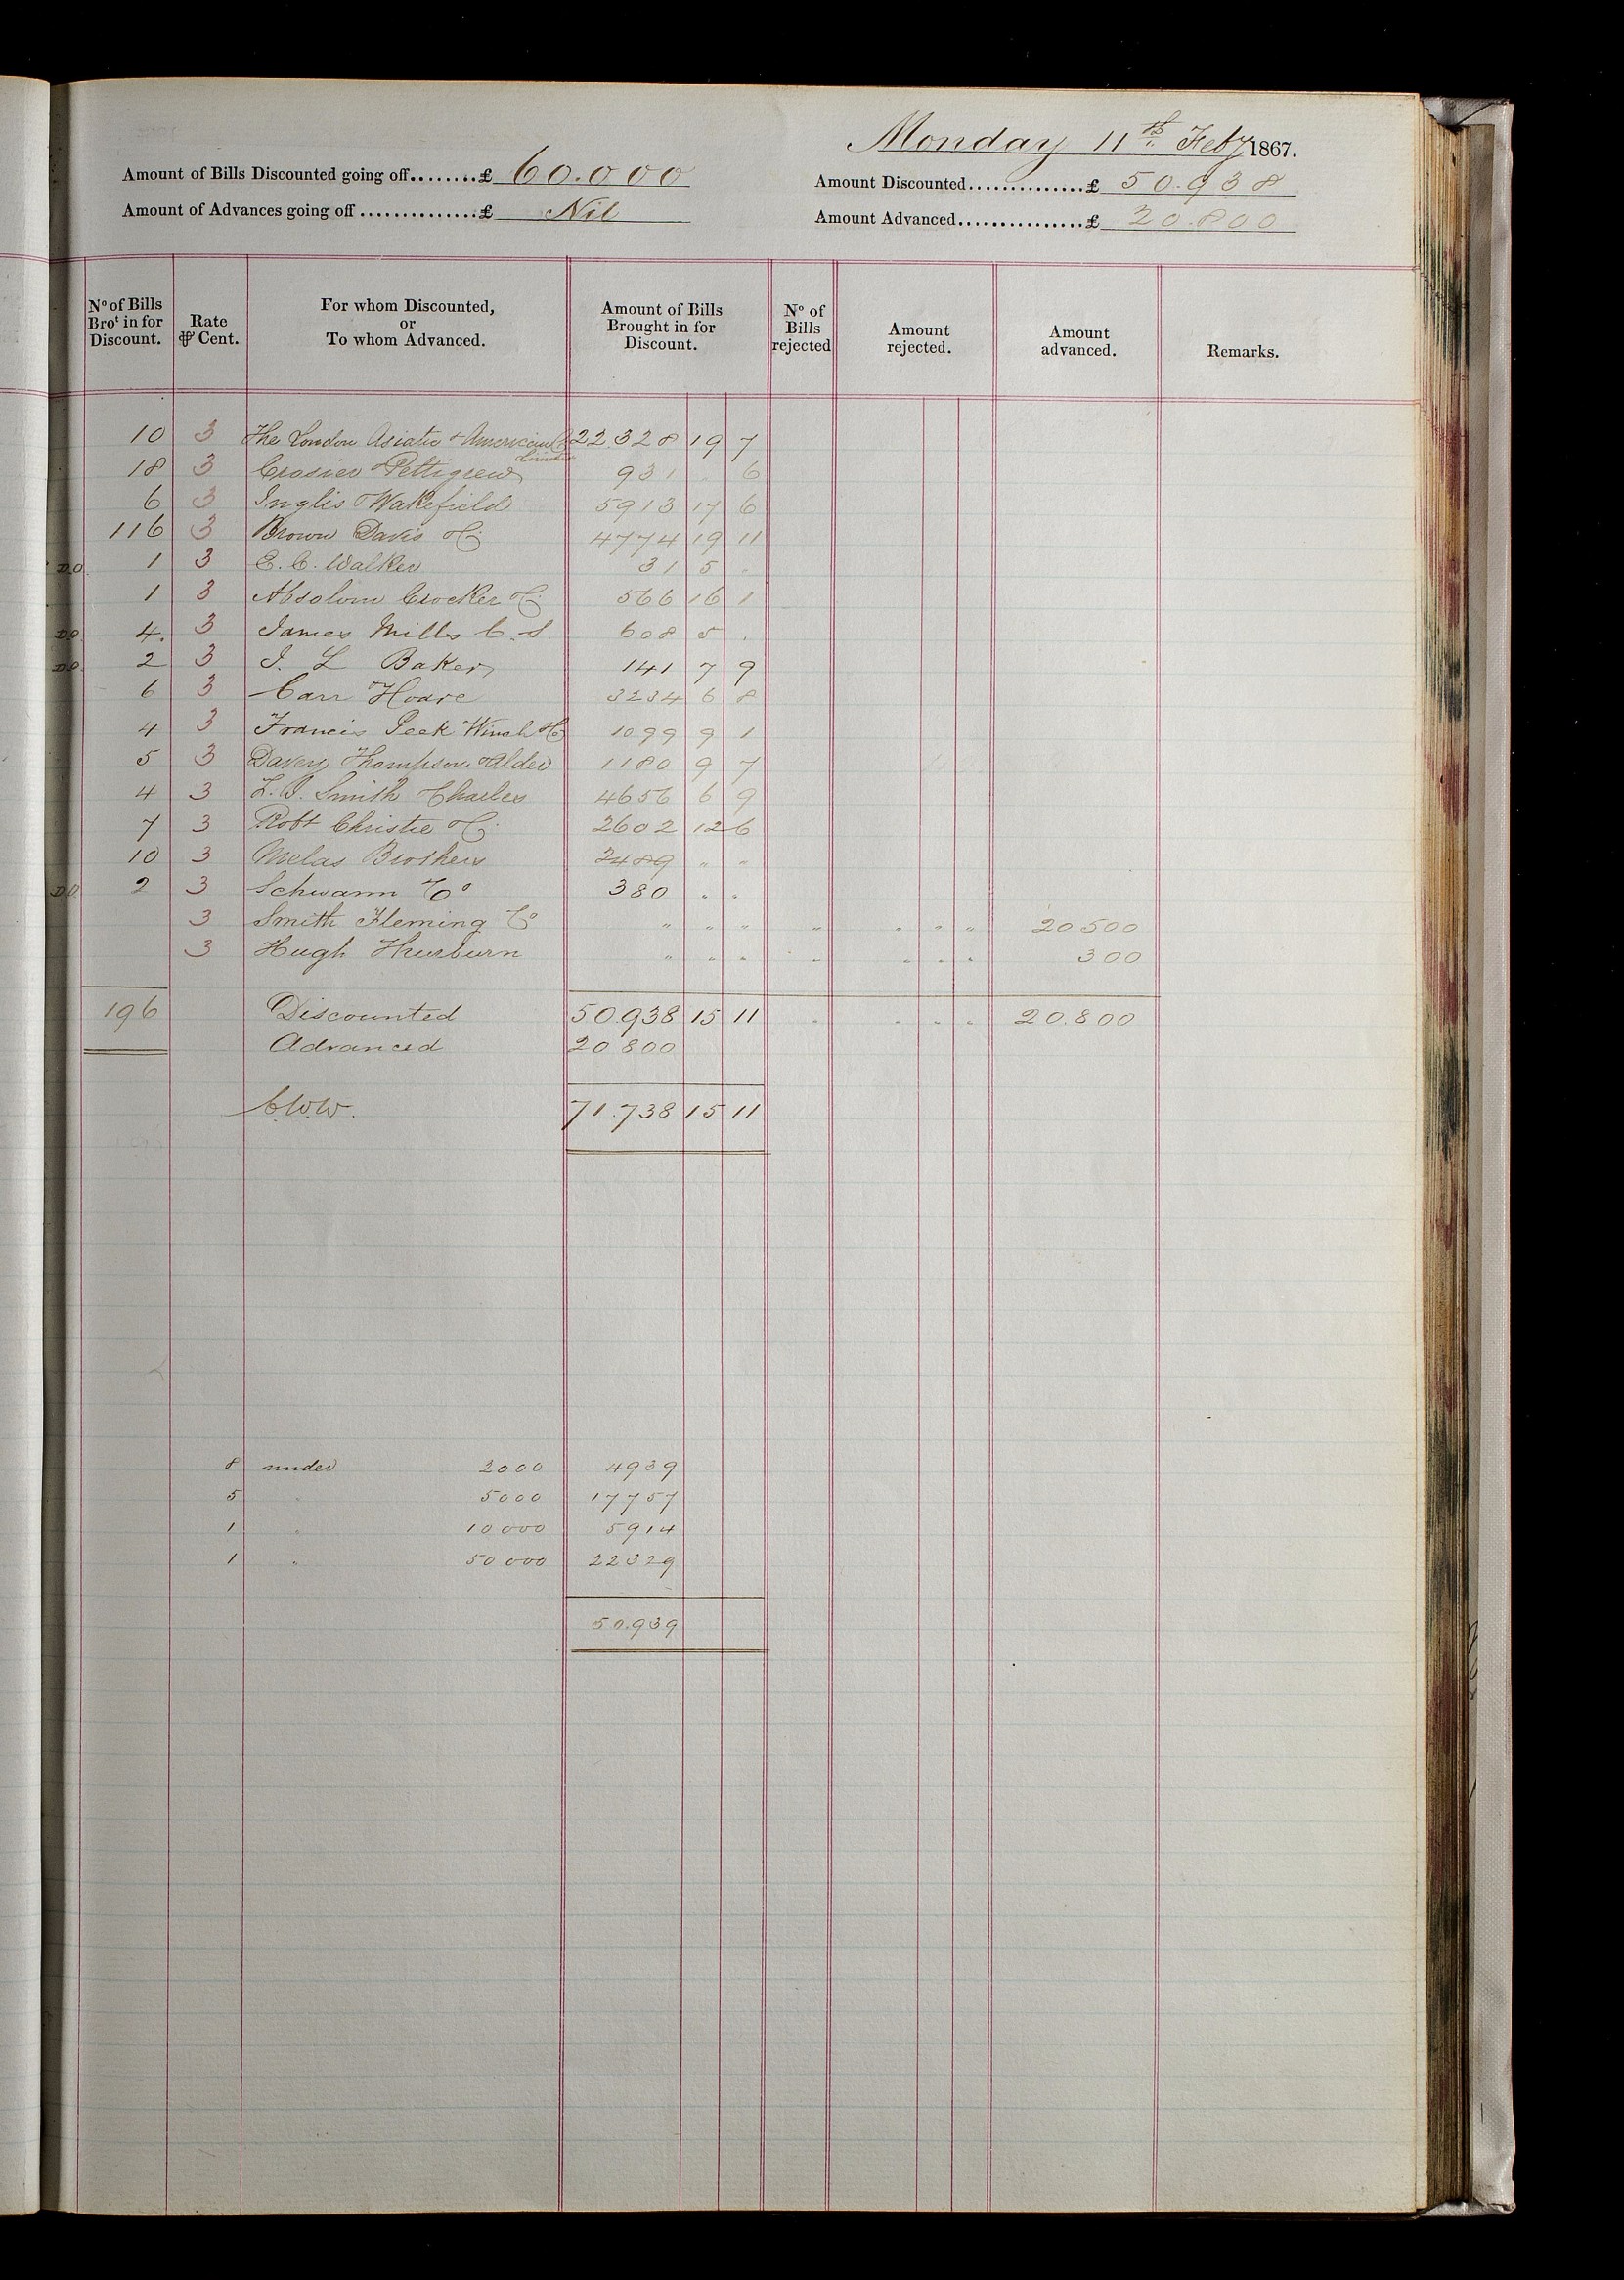 Monday 11th Feby 1867.
Amount of Bills Discounted going off........£ 60.000
Amount Discounted..............£ 50.938
Amount of Advances going off ..............£ Nil
Amount Advanced...............£ 20.800
No of Bills Brot in for Discount. Rate ⅌ Cent. For whom Discounted, or To whom Advanced. Amount of Bills Brought in for Discount. No of Bills rejected Amount rejected. Amount advanced. Remarks.
10 3 The London Asiatic & American Co Limited 22.328 19 7
18 3 Crosier & Pettigrew 931 " 6
6 3 Inglis & Wakefield 5913 17 6
116 3 Brown Davis & Co 4774 19 11
DO 1 3 E. C. Walker 31 5 "
1 3 Absolom Crocker & Co 566 16 1
DO 4. 3 James Mills C. S. 608 5 .
DO 2 3 J. L Baker 141 7 9
6 3 Carr & Hoare 3234 6 8
4 3 Francis Peek Winch & Co 1099 9 1
5 3 Davey Thompson & Alder 1180 9 7
4 3 L. J. Smith & Charles 4656 6 9
7 3 Robt Christie & Co 2602 12 6
10 3 Melas Brothers 2489 " "
DO 2 3 Schwann & Co 380 " "
3 Smith Fleming & Co " " " " " " " 20 500
3 Hugh Hurburn " " " " " " " 300
196 Discounted 50.938 15 11 " " " " 20.800
Advanced 20 800
C.W.W. 71.738 15 11
8 under 2000 4939
5 " 5000 17757
1 " 10000 5914
1 " 50000 22329
50.939